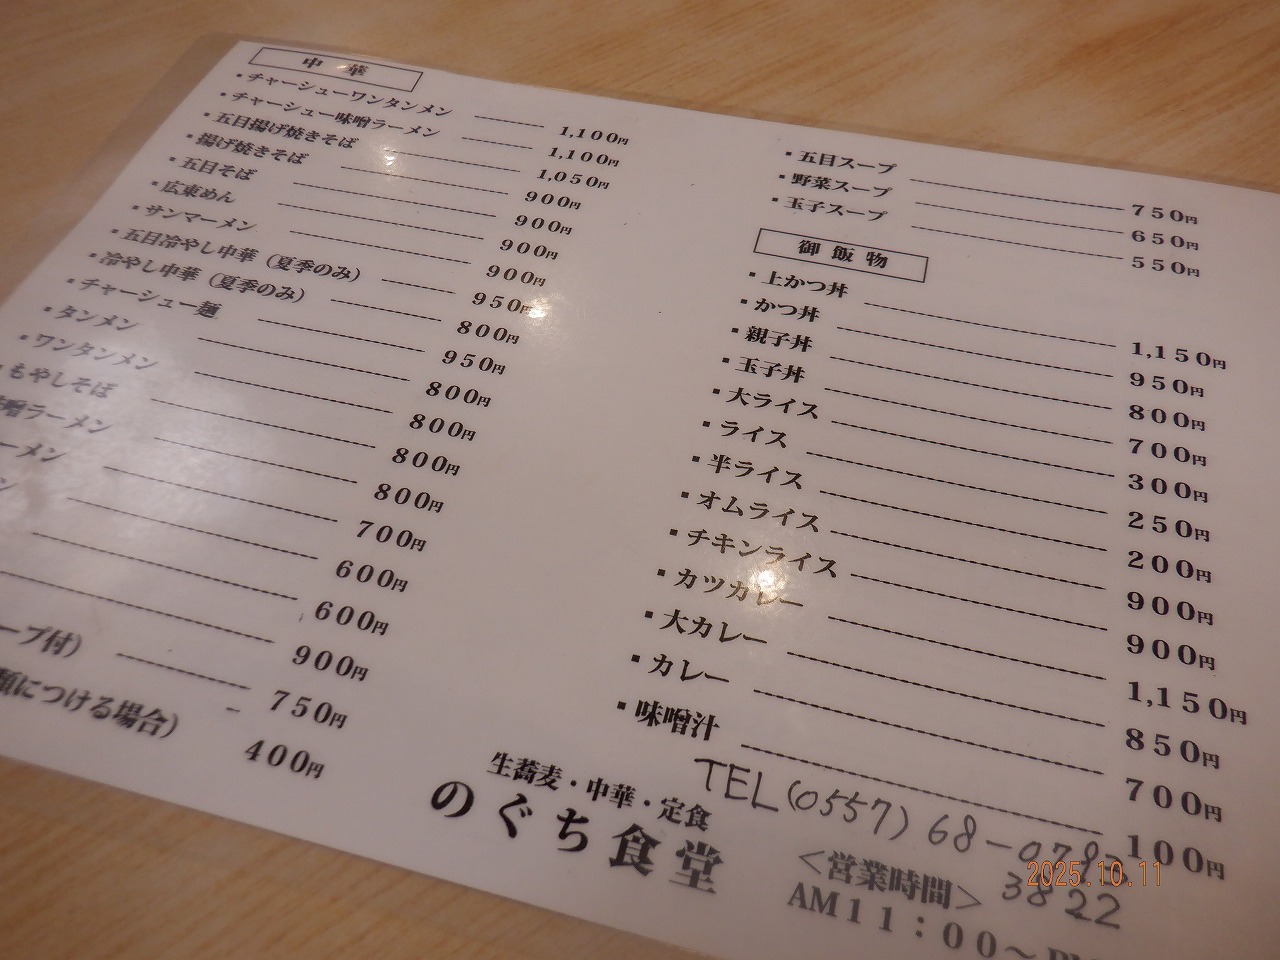 中華
・チャーシューワンタンメン 1,100円
・チャーシュー味噌ラーメン 1,100円
・五目揚げ焼きそば 1,050円
・揚げ焼きそば 900円
・五目そば 900円
・広東めん 900円
・サンマーメン 900円
・五目冷やし中華（夏季のみ） 950円
・冷やし中華（夏季のみ） 800円
・チャーシュー麺 950円
・タンメン 800円
・ワンタンメン 800円
・もやしそば 800円
味噌ラーメン 800円
ーメン 700円
ン 600円
600円
900円
ープ付） 750円
類につける場合） 400円
・五目スープ 750円
・野菜スープ 650円
・玉子スープ 550円
御飯物
・上かつ丼 1,150円
・かつ丼 950円
・親子丼 800円
・玉子丼 700円
・大ライス 300円
・ライス 250円
・半ライス 200円
・オムライス 900円
・チキンライス 900円
・カツカレー 1,150円
・大カレー 850円
・カレー 700円
・味噌汁 100円
生蕎麦・中華・定食
のぐち食堂
TEL(0557) 68-079
3822
＜営業時間＞
AM11：00～
2025.10.11